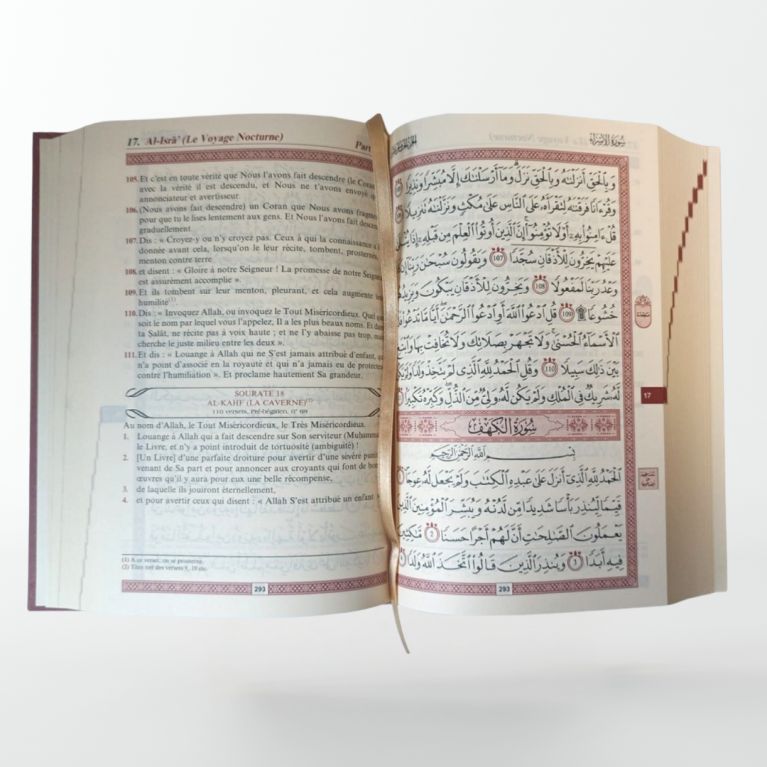 17. Al-Isrâ' (Le Voyage Nocturne)
Part
105. Et c'est en toute vérité que Nous l'avons fait descendre (le Coran
avec la vérité il est descendu, et Nous ne t'avons envoyé
annonciateur et avertisseur
106. (Nous avons fait descendre) un Coran que Nous avons
pour que tu le lises lentement aux gens. Et Nous l'avons fait
graduellement
107. Dis : « Croyez-y ou n'y croyez pas. Ceux à qui la connaissance a
donnée avant cela, lorsqu'on le leur récite, tombent, prosternés,
menton contre terre
108. et disent : « Gloire à notre Seigneur ! La promesse de notre
est assurément accomplie ».
109. Et ils tombent sur leur menton, pleurant, et cela augmente
humilité(1)
110. Dis : « Invoquez Allah, ou invoquez le Tout Miséricordieux. Quel
soit le nom par lequel vous l'appelez, Il a les plus beaux noms. Et
ta Salât, ne récite pas à voix haute ; et ne l'y abaisse pas trop,
cherche le juste milieu entre les deux ».
111. Et dis : « Louange à Allah qui ne S'est jamais attribué d'enfant,
n'a point d'associé en la royauté et qui n'a jamais eu de protecteur
contre l'humiliation ». Et proclame hautement Sa grandeur.
SOURATE 18
AL-KAHF (LA CAVERNE)(2)
110 versets, Pré-hégirien, n° 69
Au nom d'Allah, le Tout Miséricordieux, le Très Miséricordieux.
1. Louange à Allah qui a fait descendre sur Son serviteur
le Livre, et n'y a point introduit de tortuosité (ambiguïté) !
2. [Un Livre] d'une parfaite droiture pour avertir d'une sévère
venant de Sa part et pour annoncer aux croyants qui font de
œuvres qu'il y aura pour eux une belle récompense,
3. de laquelle ils jouiront éternellement,
4. et pour avertir ceux qui disent : « Allah S'est attribué un enfant
293
سُورَةُ الإِسْرَاءِ
وَبِالْحَقِّ أَنزَلْنَاهُ وَبِالْحَقِّ نَزَلَ وَمَا أَرْسَلْنَاكَ إِلَّا مُبَشِّرًا وَنَذِيرًا 105
وَقُرْءَانًا فَرَقْنَاهُ لِتَقْرَأَهُ عَلَى النَّاسِ عَلَىٰ مُكْثٍ وَنَزَّلْنَاهُ تَنزِيلًا
قُلْ ءَامِنُوا بِهِ أَوْ لَا تُؤْمِنُوا إِنَّ الَّذِينَ أُوتُوا الْعِلْمَ مِن قَبْلِهِ إِذَا يُتْلَىٰ
عَلَيْهِمْ يَخِرُّونَ لِلْأَذْقَانِ سُجَّدًا 107 وَيَقُولُونَ سُبْحَانَ رَبِّنَا إِن
وَعْدُ رَبِّنَا لَمَفْعُولًا 108 وَيَخِرُّونَ لِلْأَذْقَانِ يَبْكُونَ وَيَزِيدُهُمْ
خُشُوعًا ۩ 109 قُلِ ادْعُوا اللَّهَ أَوِ ادْعُوا الرَّحْمَٰنَ أَيًّا مَّا تَدْعُوا فَلَهُ
الْأَسْمَاءُ الْحُسْنَىٰ وَلَا تَجْهَرْ بِصَلَاتِكَ وَلَا تُخَافِتْ بِهَا وَابْتَغِ
بَيْنَ ذَٰلِكَ سَبِيلًا 110 وَقُلِ الْحَمْدُ لِلَّهِ الَّذِي لَمْ يَتَّخِذْ وَلَدًا وَلَمْ يَكُن
لَّهُ شَرِيكٌ فِي الْمُلْكِ وَلَمْ يَكُن لَّهُ وَلِيٌّ مِّنَ الذُّلِّ وَكَبِّرْهُ تَكْبِيرًا
سُورَةُ الْكَهْفِ
بِسْمِ اللَّهِ الرَّحْمَٰنِ الرَّحِيمِ
الْحَمْدُ لِلَّهِ الَّذِي أَنزَلَ عَلَىٰ عَبْدِهِ الْكِتَابَ وَلَمْ يَجْعَل لَّهُ عِوَجًا
قَيِّمًا لِّيُنذِرَ بَأْسًا شَدِيدًا مِّن لَّدُنْهُ وَيُبَشِّرَ الْمُؤْمِنِينَ الَّذِينَ
يَعْمَلُونَ الصَّالِحَاتِ أَنَّ لَهُمْ أَجْرًا حَسَنًا 2 مَّاكِثِينَ
فِيهِ أَبَدًا 3 وَيُنذِرَ الَّذِينَ قَالُوا اتَّخَذَ اللَّهُ وَلَدًا
17
293